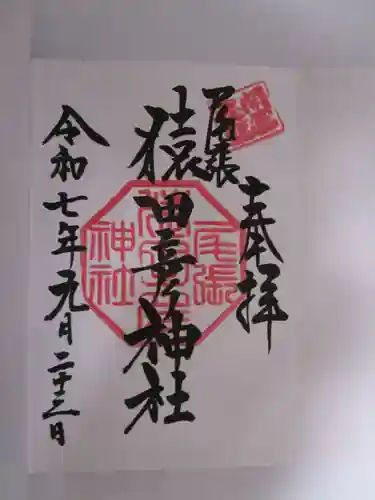 奉拝
尾張
猿田彦神社
尾張
神社
令和七年元月二十三日